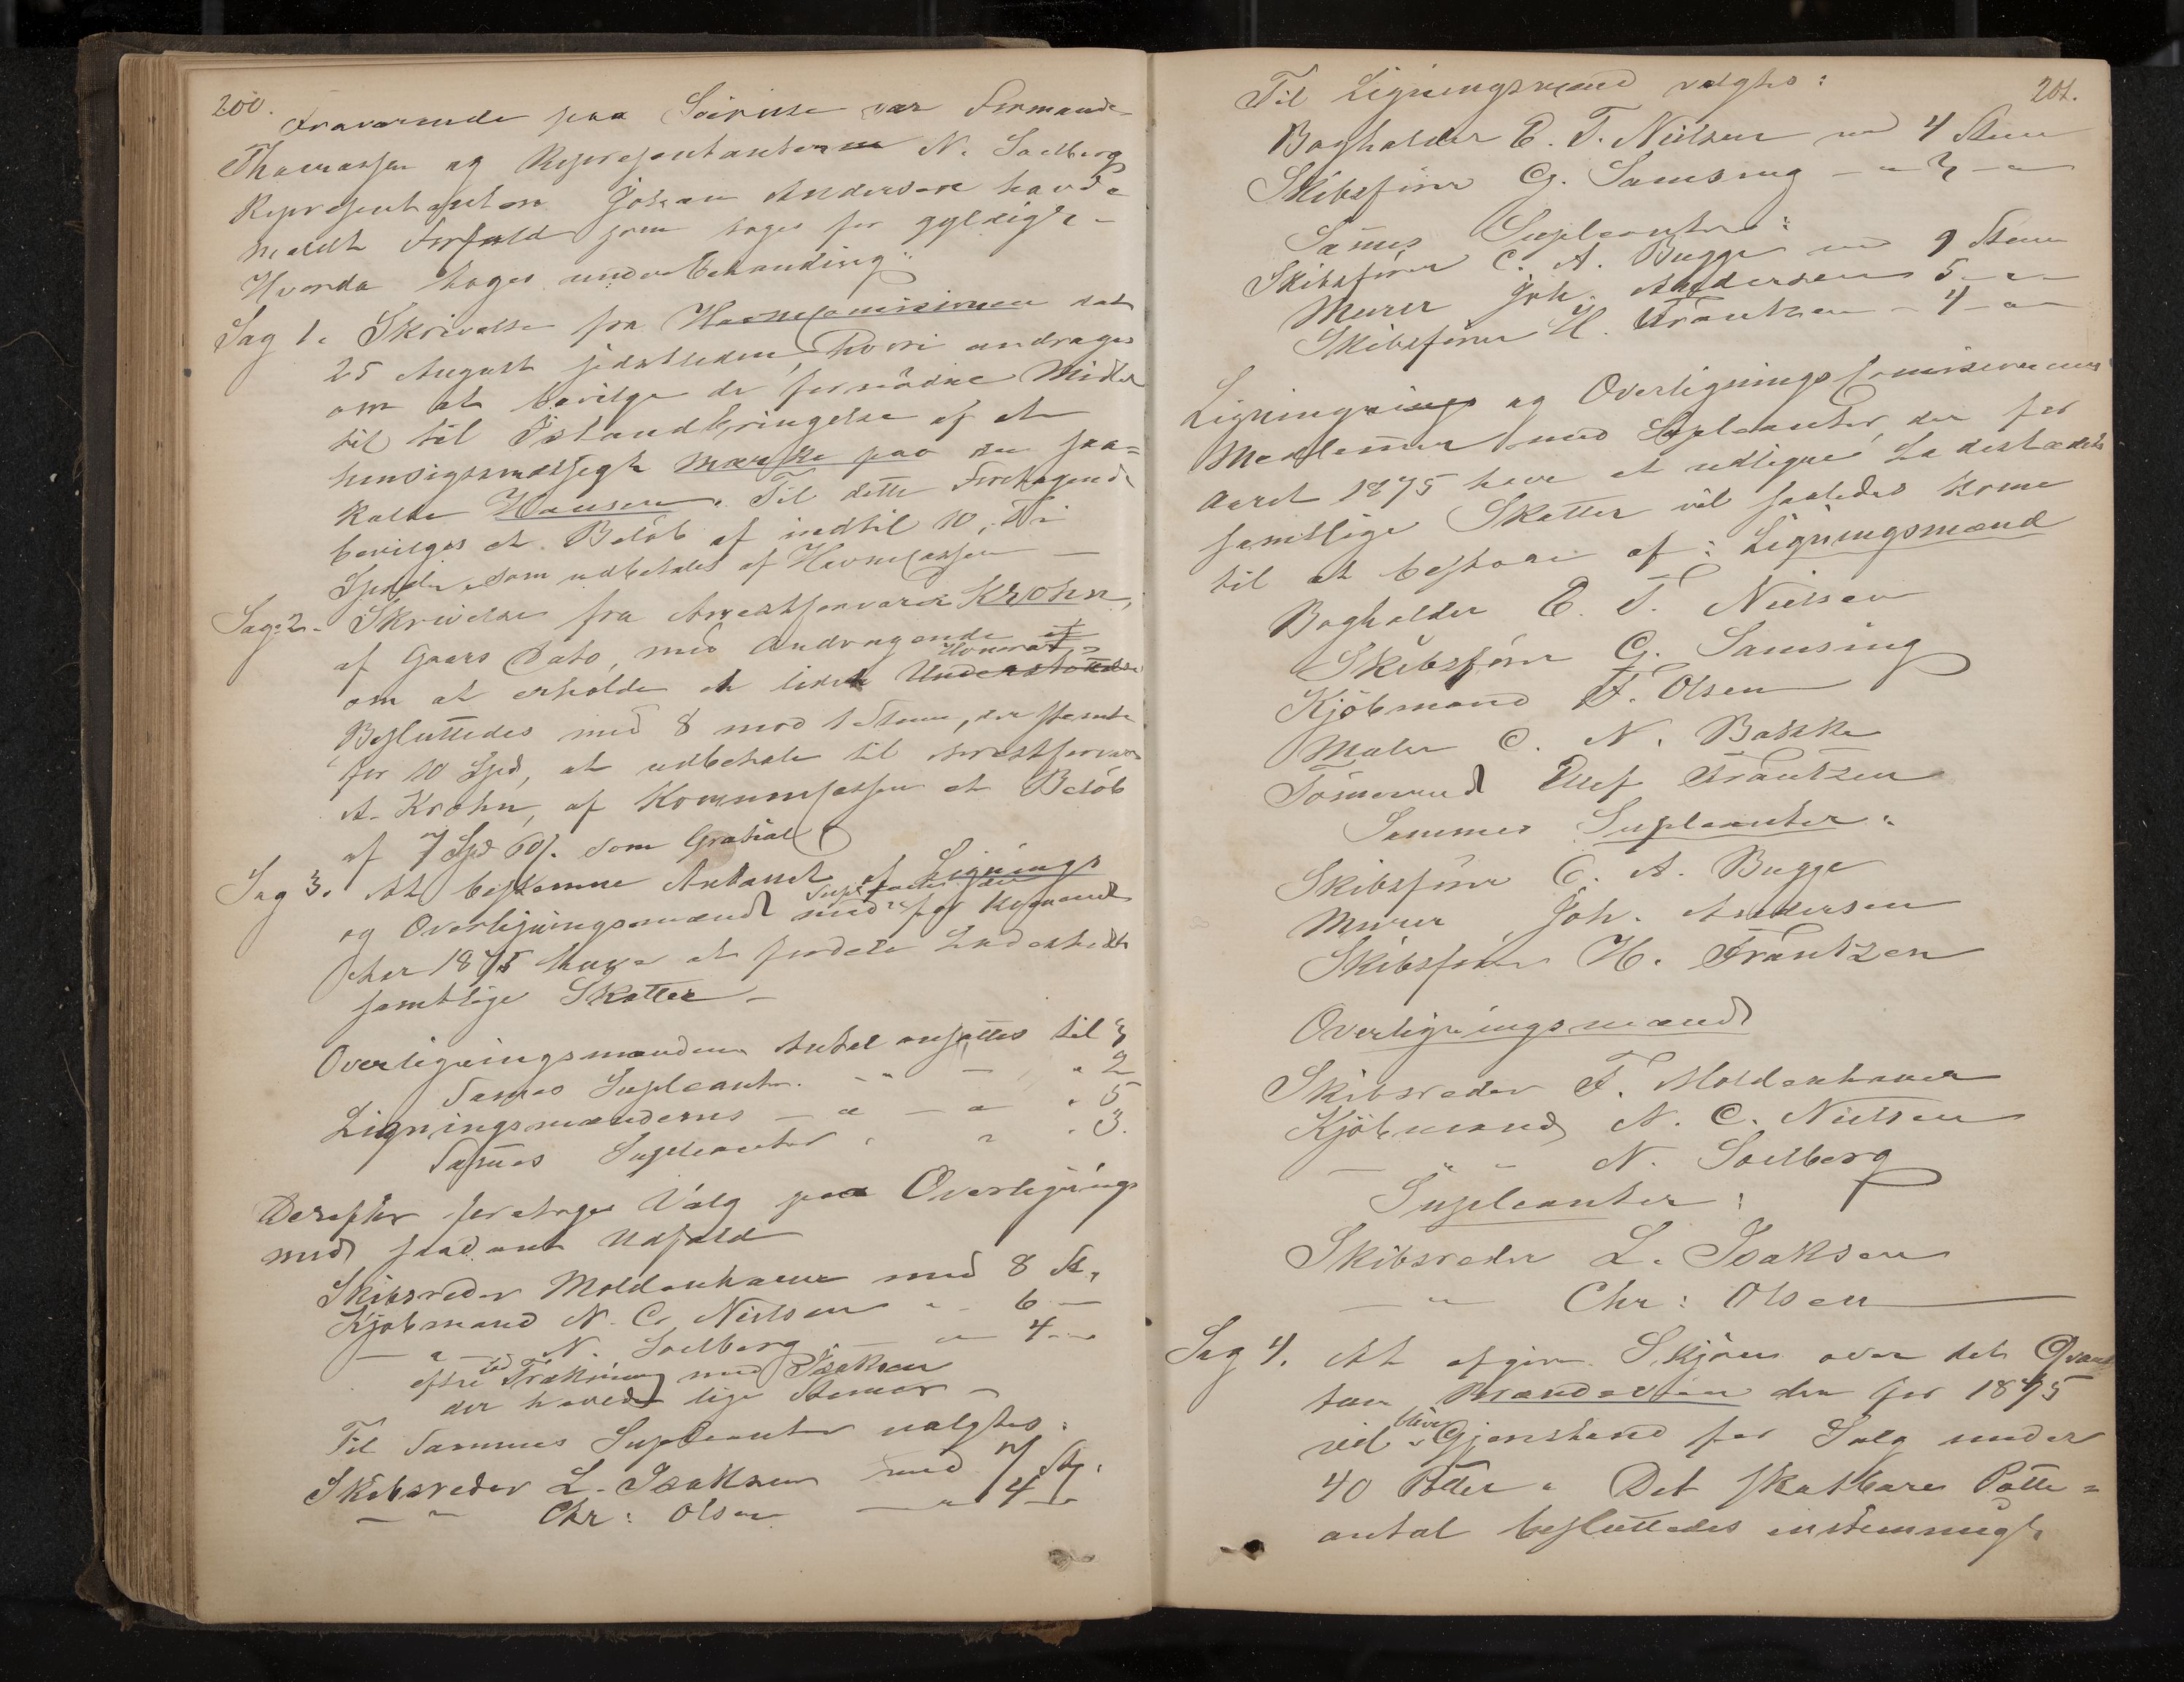 200.
Fraværende paa Reise var Formand
Thomassen og Repræsentanten N. Soelberg
Repræsentanten Johan Andersen havde
meldt Forfald som toges for gyldigt.
Hvorda toges under Behandling:
Sag 1. Skrivelse fra Havnecomisionen dat
25 August sidstleden, hvori andrages
om at bevilge de fornödne Midler
til til Istandbringelse af et
hensigtsmæssigt Mærke paa den saa=
kalte Hausen. Til dette Foretagende
bevilges et Belöb af indtil 10, ti
Spdlr, som udbetales af Havnecassen —
Sag 2. Skrivelse fra Arrestforvarer Krohn,
af Gaars Dato, med Andragende
om at erholde et lidet Understöttelse
Honorar
Besluttedes med 8 mod 1 Steme, der stemte
for 10 Spd, at udbetale til Arrestforvarer
A. Krohn, af Kommunecassen et Belöb
af 7 Spd 60/. som Gratial
Sag 3. At bestemme Antallet af Lignings
og Overligningsmænd med Supleanter der for kommende
Aar 1875 have at fordele Ladestedets
samtlige Skatter —
Overligningsmændenes Antal ansattes til 3
Sammes Supleanter — " — " 2
Ligningsmændenes — " — " — " 5
Sammes Supleanter " " " 3.
Derefter foretoges Valg paa Overlignings
med saadant Udfald
Skibsreder Moldenhauer med 8 St.
Kjöbmand N. C. Nielsen " - 6 —
— " — N. Soelberg — " — 4 —
efter Lodtrækning med Isaksen
der havde lige Stemer —
Til Sammes Supleanter valgtes:
Skibsreder L. Isaksen med 7 St.
— " Chr: Olsen — " 4 —
201.
Til Ligningsmænd valgtes:
Bogholder E. T. Nielsen med 4 Steme
Skibsförer G. Samsing — " 3 — "
Sammes Supleanter:
Skibsförer C. A. Bugge med 9 Steme
Murer Joh. Andersen 5 — " —
Skibsförer H. Frantzen — 4 — "
Lignings og Overligningscomisionernes
Medlemer med Supleanter, der for
Aaret 1875 have at udligne Ladestedets
samtlige Skatter vil saaledes kome
til at bestaae af: Ligningsmænd
Bogholder E. T. Nielsen
Skibsförer G. Samsing
Kjöbmand F. Olsen
Maler C. N. Bakke
Tömmermd Ellef Frantzen
Sammes Supleanter:
Skibsförer C. A. Bugge
Murer Joh. Andersen
Skibsförer H. Frantzen
Overligningsmænd
Skibsreder F. Moldenhauer
Kjöbmand N. C. Nielsen
— " — N. Soelberg
Supleanter:
Skibsreder L. Isaksen
— " Chr: Olsen
Sag 4. At afgive Skjön over det Qvan
tum Brændeviin der for 1875
vil blive Gjenstand for Salg under
40 Potter. Det skatbare Potte=
antal besluttedes enstemmigt